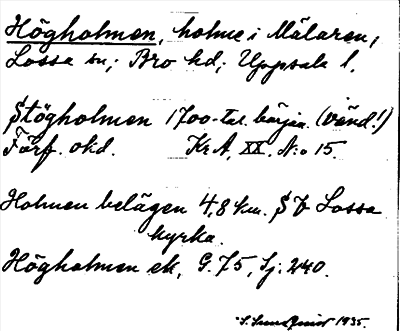 Högholmen, holme i Mälaren,
Lossa sn; Bro hd; Uppsala l.
Stögholmen 1700-tal. börjn. (vänd!)
Förf. okd. Kr.A, XX. N:o 15.
Holmen belägen 4,8 km. S V Lossa
kyrka.
Högholmen ek, G. 75, Sj: 240.
S. Sundquist 1935.